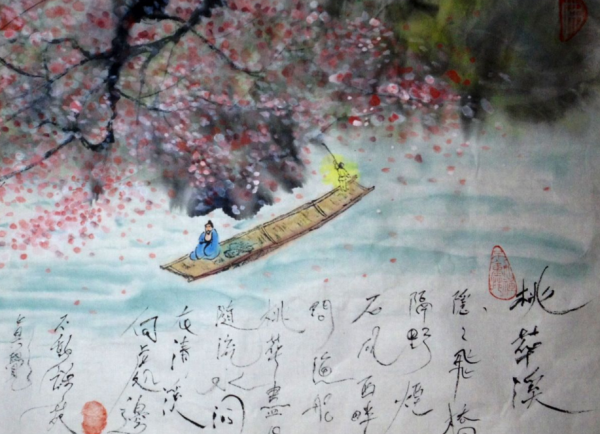 桃華溪
隐々飛橋
隔野煙
石矶西畔
問漁船
桃華盡日
隨流水洞
在清溪
何處邊